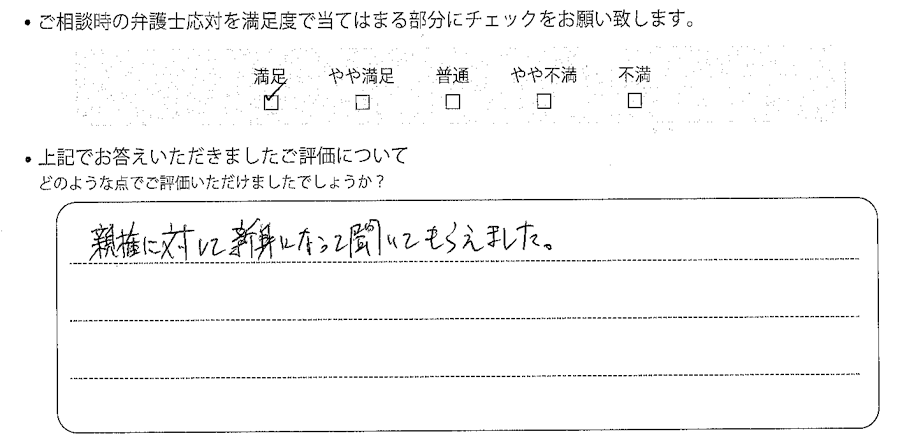 ・ご相談時の弁護士応対を満足度で当てはまる部分にチェックをお願い致します。
満足 やや満足 普通 やや不満 不満
☑ □ □ □ □
・上記でお答えいただきましたご評価について
どのような点でご評価いただけましたでしょうか？
親権に対して新身になって聞いてもらえました。